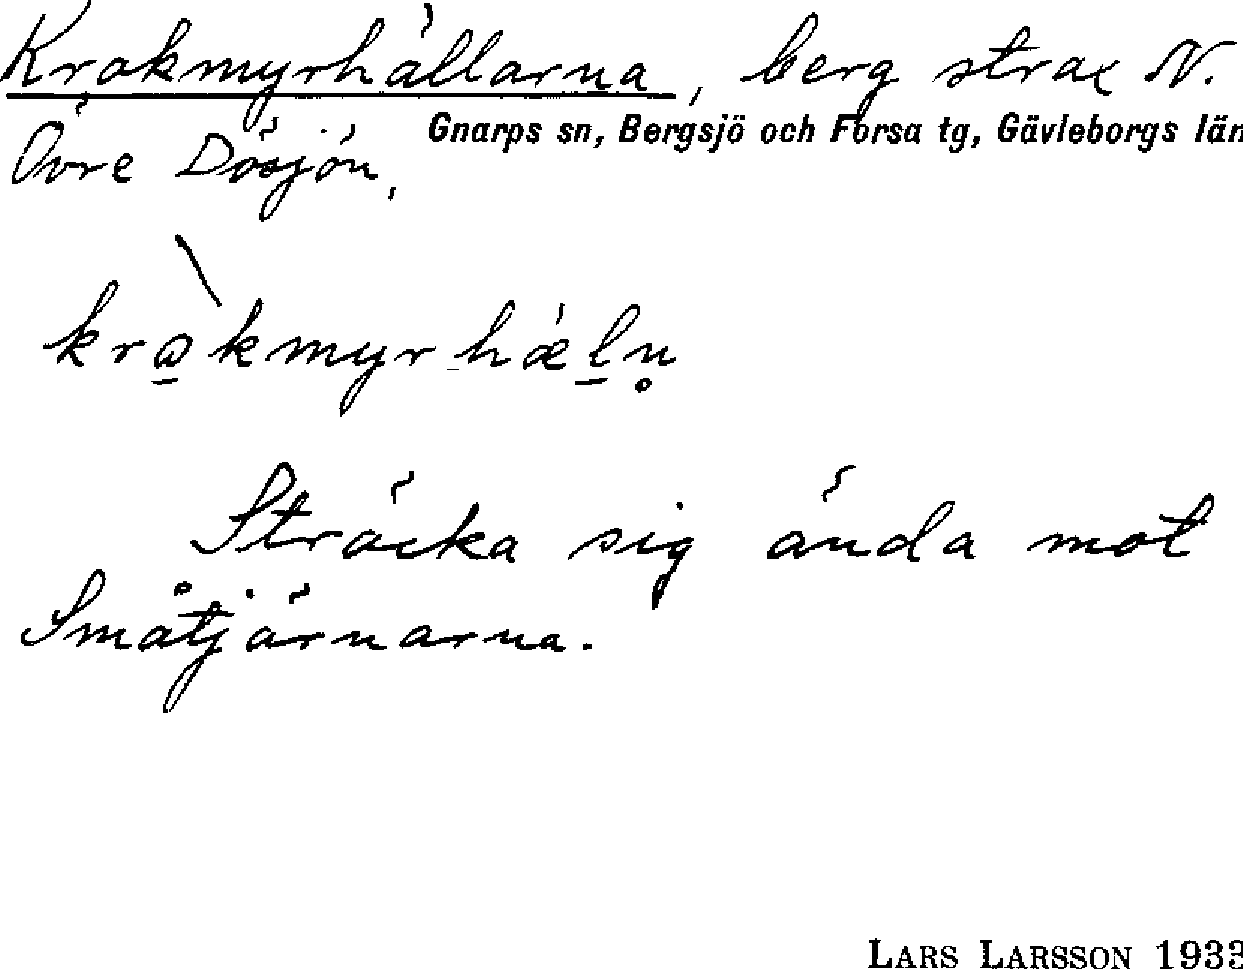 Krokmyrhällarna, berg strax N.
Gnarps sn, Bergsjö och Forsa tg, Gävleborgs län
Övre Dösjön,
Sträcka sig ända mot
Småtjärnarna.
LARS LARSSON 1933